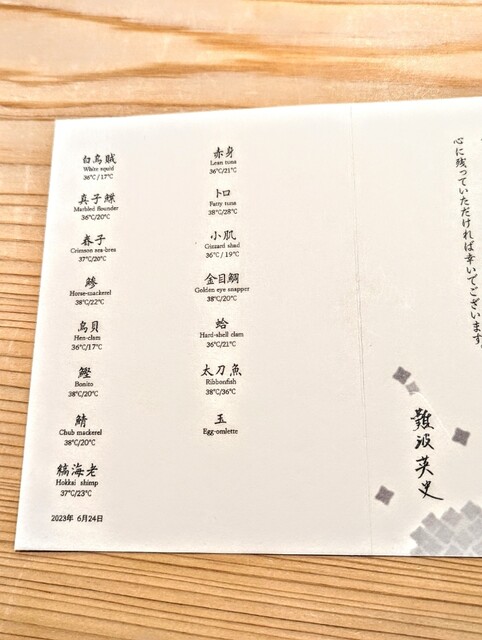 白烏賊
White squid
36℃/17℃
真子鰈
Marbled flounder
36℃/20℃
春子
Crimson sea-brea
37℃/20℃
鯵
Horse-mackerel
38℃/22℃
烏貝
Hen-clam
36℃/17℃
鰹
Bonito
38℃/20℃
鯖
Chub mackerel
38℃/20℃
縞海老
Hokkai shimp
37℃/23℃
2023年 6月24日
赤身
Lean tuna
36℃/21℃
トロ
Fatty tuna
38℃/28℃
小肌
Gizzard shad
36℃ / 19℃
金目鯛
Golden eye snapper
38℃/20℃
蛤
Hard-shell clam
36℃/21℃
太刀魚
Ribbonfish
38℃/36℃
玉
Egg-omlette
心に残っていただければ幸いでございます。
難波英史